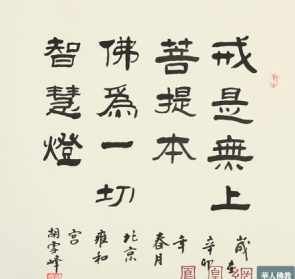 戒是無上
菩提本
佛爲一切
智慧燈
歲在
辛卯
年
春月
北京
雍和
宮
胡雪峰
華人佛教